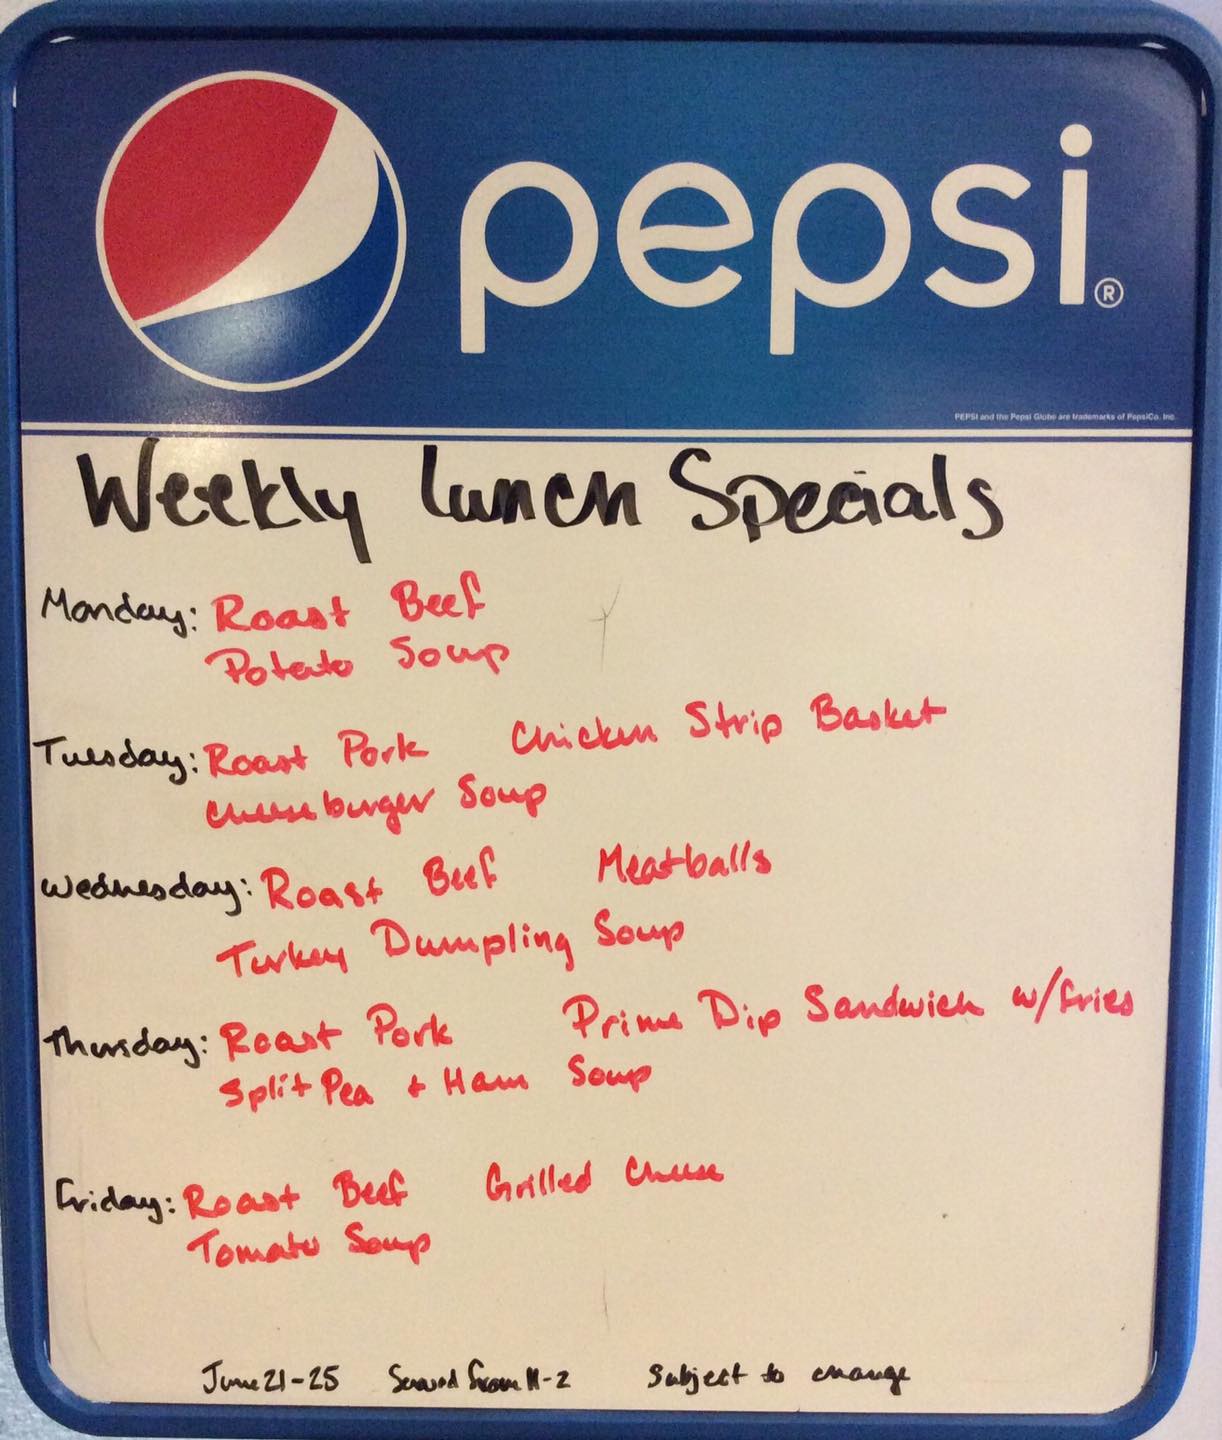 pepsi®
PEPSI and the Pepsi Globe are trademarks of PepsiCo. Inc.
Weekly Lunch Specials
Monday: Roast Beef
Potato Soup
Tuesday: Roast Pork Chicken Strip Basket
Cheeseburger Soup
Wednesday: Roast Beef Meatballs
Turkey Dumpling Soup
Thursday: Roast Pork Prime Dip Sandwich w/fries
Split Pea + Ham Soup
Friday: Roast Beef Grilled Cheese
Tomato Soup
June 21-25 Served from 11-2 Subject to change